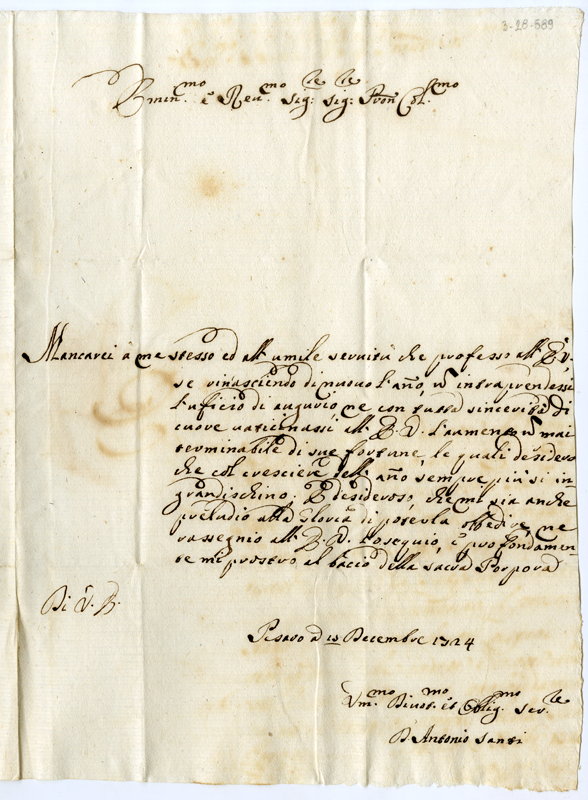 3-28-589
Emin.mo e Reu.mo Sig:re Sig:re Pron Col.mo
Mancarei à me stesso ed all' umile seruitù che professo all' E.V.
se rinascendo di nuouo l'año, ñ intraprendessi
l'ufficio di augurio, ne con tutta sincerità di
cuore uaticinassi all' E.V. l'aumento ñ mai
terminabile di sue fortune, le quali desidero
che col crescier dell' año sempre più si in
grandischino; E desideroso, che mi sia anche
preludio alla Gloria di poterla obbedire, ne
rassegnio all' E.V. l'osequio, e profondamen
te mi prostro al bacio della sacra Porpora
Di V.E.
Pesaro a 15 Decembre 1724
Vm.mo Diuot.mo et Oblig.mo Ser.re
D. Antonio Santi